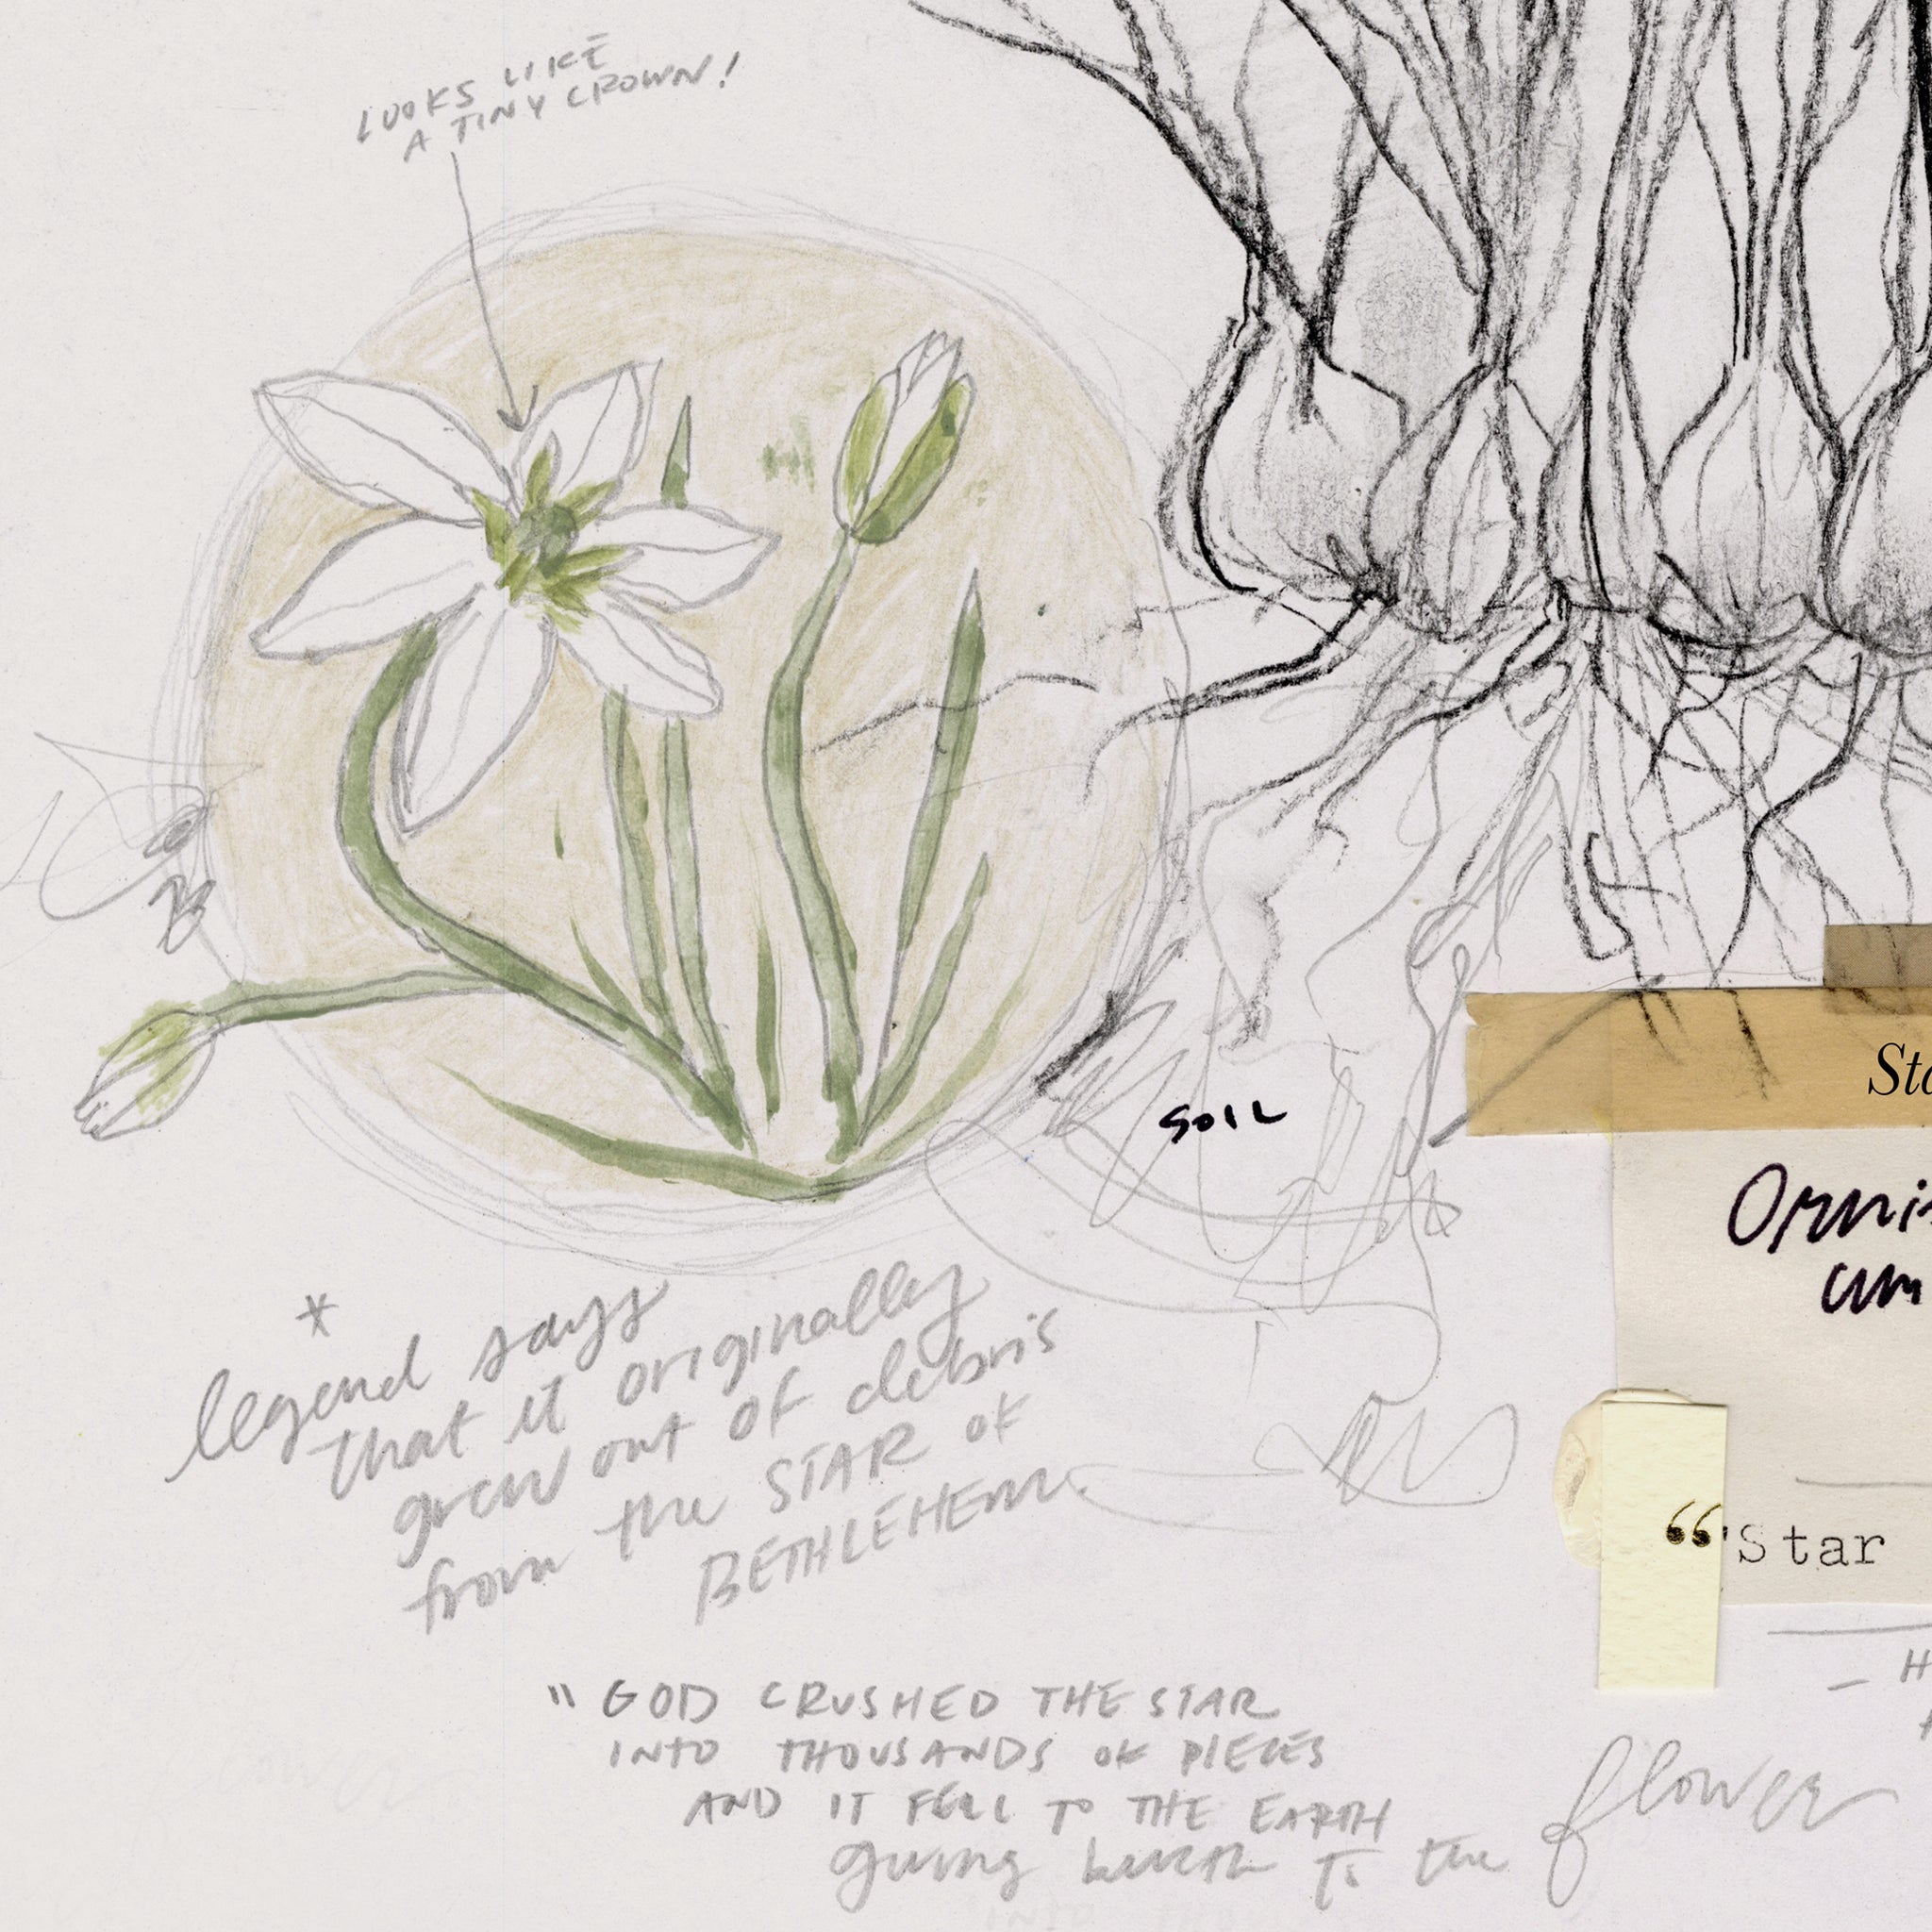 LOOKS LIKE
A TINY CROWN!
SOIL
Sta
Orni
um
*
legend says
that it originally
grew out of debris
from the STAR of
BETHLEHEM.
“Star
" GOD CRUSHED THE STAR
INTO THOUSANDS OF PIECES
AND IT FELL TO THE EARTH
giving birth to the
flower
- H